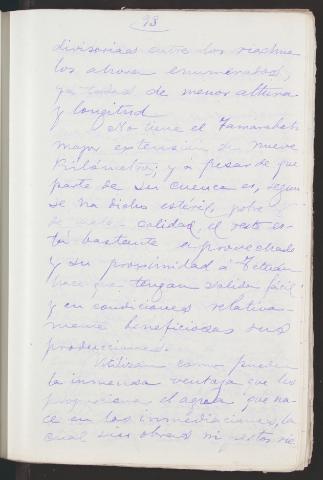 98
divisorias entre los riachue
los ahora enumerados,
ya todas de menor altura
y longitud.
No tiene el Tamarabet
mayor extensión de nueve
Kilómetros; y á pesar de que
parte de su cuenca es, segun
se ha dicho estéril, pobre
de calidad, el resto es
tá bastante aprovechado
y su proximidad á Tetuán
hace que tengan salida fácil
y en condiciones relativa-
mente beneficiosas sus
producciones.
Utilizan como pueden
la inmensa ventaja que les
proporciona el agua que na-
ce en las inmediaciones, la
cual sin obras ni gastos rie